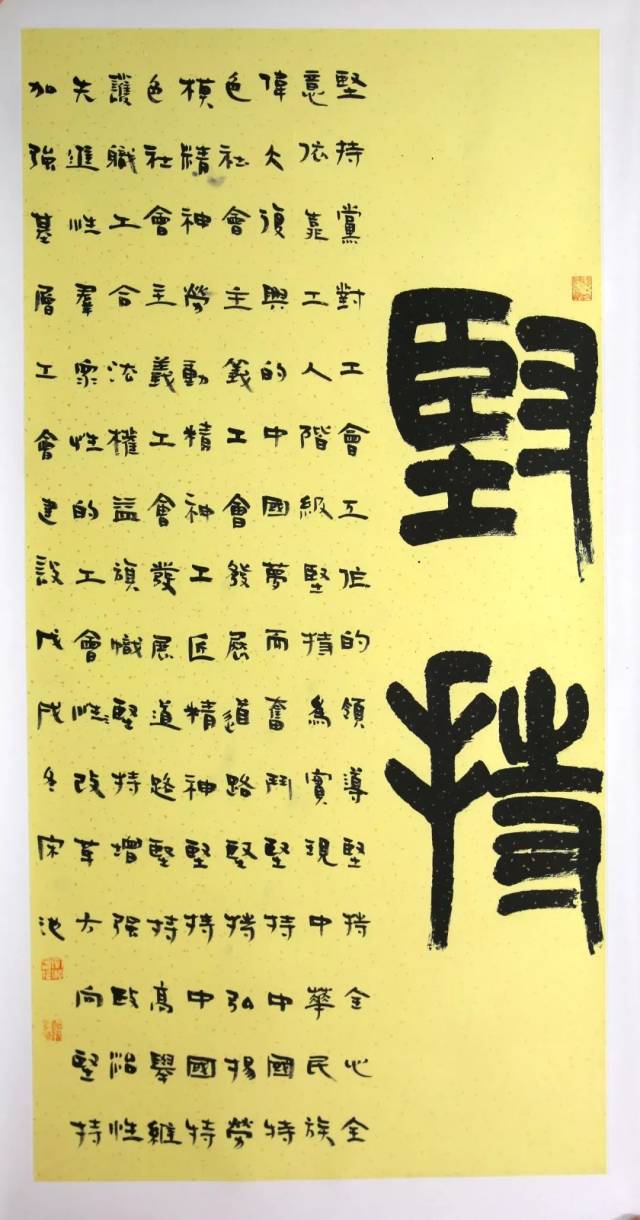 堅持
堅持黨對工會工作的領導堅持全心全
意依靠工人階級堅持為實現中華民族
偉大復興的中國夢而奮鬥堅持中國特
色社會主義工會發展道路堅持弘揚勞
模精神勞動精神工匠精神堅持中國特
色社會主義工會發展道路堅持高舉維
護職工合法權益旗幟堅持增强政治性
先進性羣眾性的工會性改革方向堅持
加強基層工會建設戊戌冬宋池